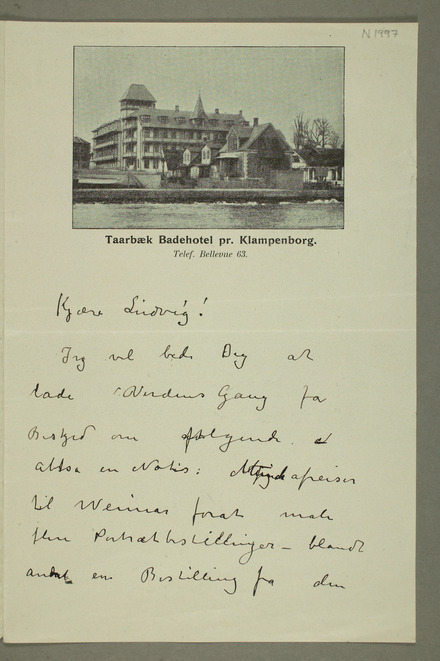 N 1997
Taarbæk Badehotel pr. Klampenborg.
Telef. Bellevue 63.
Kjære Ludvig!
Jeg vil bede Dig at
lade "Verdens Gang få
Beskjed om følgende.
altså en Notis: afreiser
til Weimar forat male
flere Portrætbestillinger – blandt
andet en Bestilling fra den